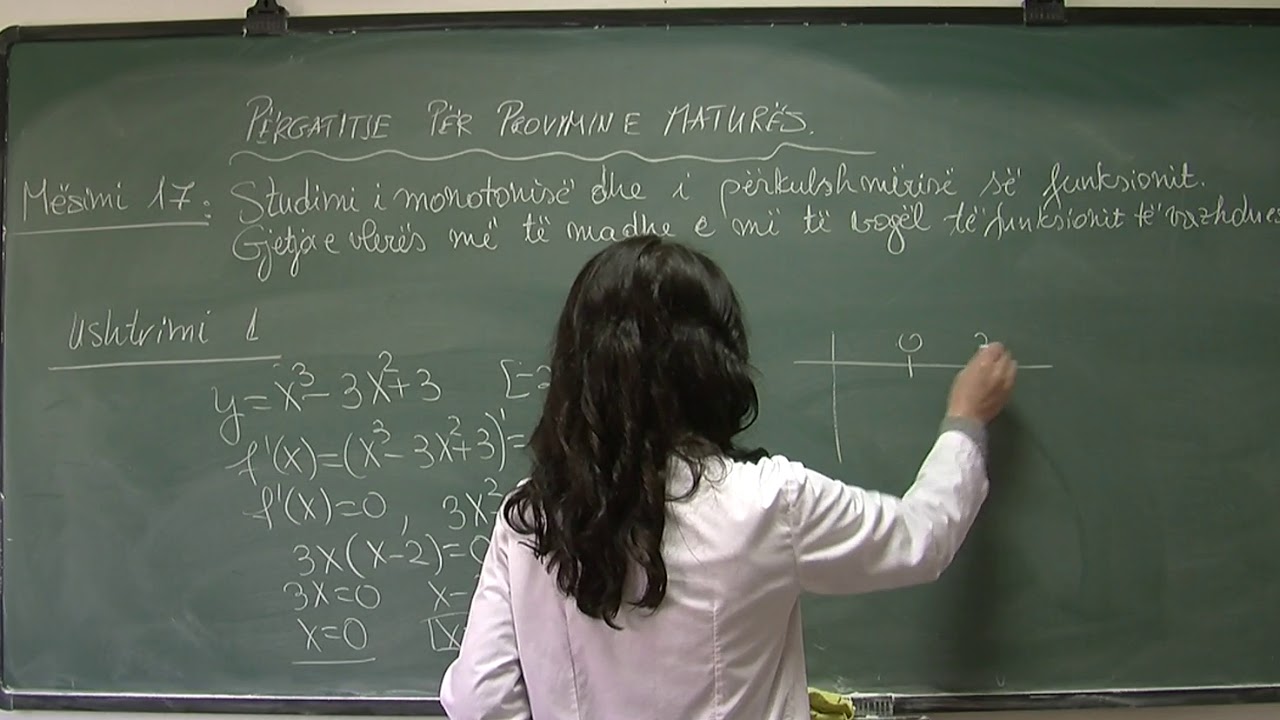 PËRGATITJE PËR PROVIMIN E MATURËS.
Mësimi 17: Studimi i monotonisë dhe i përkulshmërisë së funksionit.
Gjetja e vlerës më të madhe e më të vogël të funksionit të vazhdue
Ushtrimi 1
y=x³-3x²+3 [-2
f'(x)=(x³-3x²+3)'=
f'(x)=0, 3x²
3x(x-2)=0
3x=0 x-
x=0 x
0 2